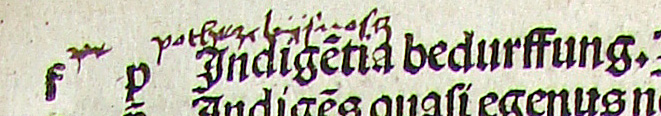 f p Indigētia bedurffung.
Indigēs quasi egenus